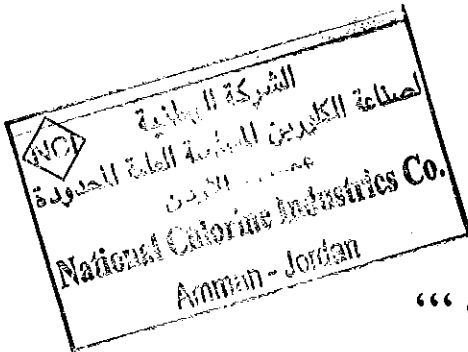 الشركة الوطنية
لصناعة الكلورين المساهمة العامة المحدودة
NCI
عمان - الاردن
National Chlorine Industries Co.
Amman - Jordan